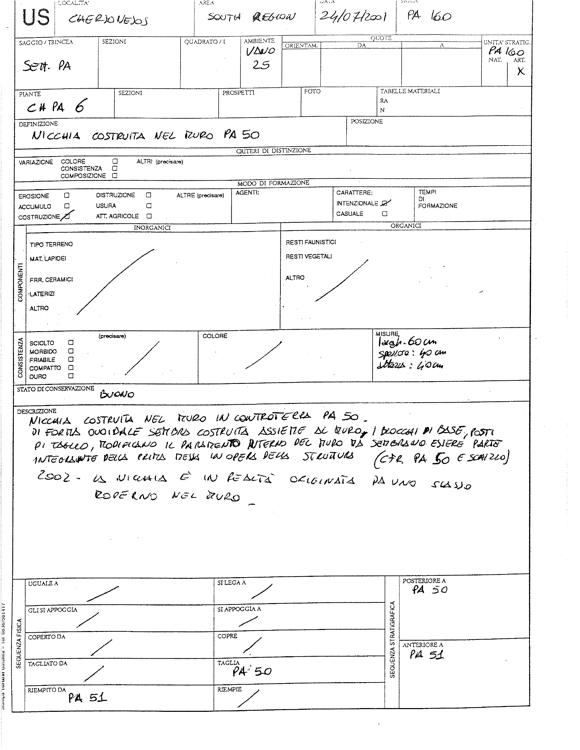 US
LOCALITA'
CHERSONESOS
AREA
SOUTH REGION
DATA
24/07/2001
PA 160
SAGGIO / TRINCEA
Sett. PA
SEZIONI
QUADRATO / I
AMBIENTE
VANO
25
QUOTE
ORIENTAM.
DA
A
UNITA' STRATIG.
PA 160
NAT. ART.
X
PIANTE
CH PA 6
SEZIONI
PROSPETTI
FOTO
TABELLE MATERIALI
RA
N
DEFINIZIONE
NICCHIA COSTRUITA NEL MURO PA 50
POSIZIONE
CRITERI DI DISTINZIONE
VARIAZIONE COLORE ☐ ALTRI (precisare)
CONSISTENZA ☐
COMPOSIZIONE ☐
MODO DI FORMAZIONE
EROSIONE ☐ DISTRUZIONE ☐ ALTRE (precisare)
ACCUMULO ☐ USURA ☐
COSTRUZIONE ☑ ATT. AGRICOLE ☐
AGENTI:
CARATTERE:
INTENZIONALE ☑
CASUALE ☐
TEMPI
DI
FORMAZIONE
COMPONENTI
INORGANICI
TIPO TERRENO
MAT. LAPIDEI
FRR. CERAMICI
LATERIZI
ALTRO
ORGANICI
RESTI FAUNISTICI
RESTI VEGETALI
ALTRO
CONSISTENZA
(precisare)
SCIOLTO ☐
MORBIDO ☐
FRIABILE ☐
COMPATTO ☐
DURO ☐
COLORE
MISURE
largh. 60 cm
spessore: 40 cm
altezza: 40 cm
STATO DI CONSERVAZIONE
BUONO
DESCRIZIONE
NICCHIA COSTRUITA NEL MURO IN CONTROTERRA PA 50.
DI FORMA OVOIDALE SEMBRA COSTRUITA ASSIEME AL MURO, I BLOCCHI DI BASE, POSTI
DI TAGLIO, MODIFICANO IL PARAMENTO INTERNO DEL MURO MA SEMBRANO ESSERE PARTE
INTEGRANTE DELLA PRIMA MESSA IN OPERA DELLA STRUTTURA (CFR. PA 50 E SCHIZZO)
2002 - LA NICCHIA È IN REALTÀ ORIGINATA DA UNO SCASSO
MODERNO NEL MURO
SEQUENZA FISICA
UGUALE A
SI LEGA A
GLI SI APPOGGIA
SI APPOGGIA A
COPERTO DA
COPRE
TAGLIATO DA
TAGLIA
PA 50
RIEMPITO DA
PA 51
RIEMPIE
SEQUENZA STRATIGRAFICA
POSTERIORE A
PA 50
ANTERIORE A
PA 51